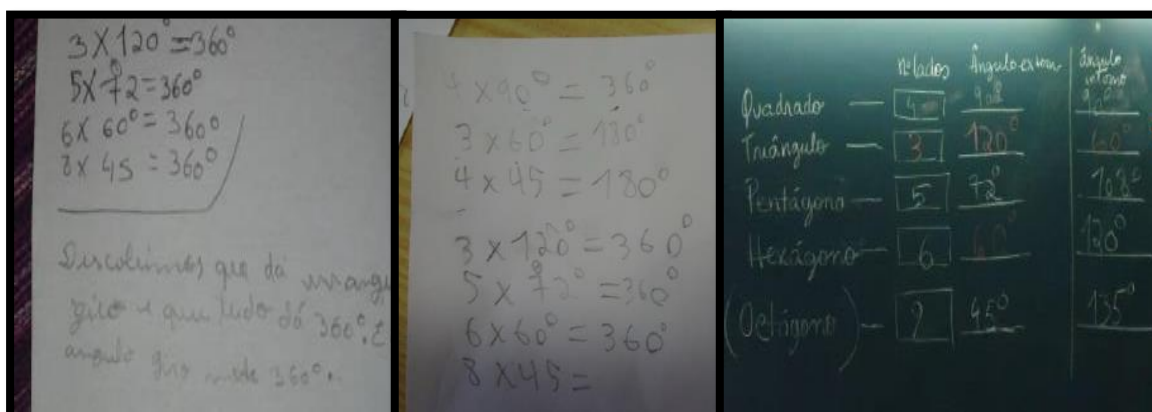 3 X 120° = 360°
5 X 72° = 360°
6 X 60° = 360°
8 X 45 = 360°
Descobrimos que dá um angu
giro e que tudo dá 360°. E
angulo giro mede 360°.
4 x 90° = 360°
3 x 60° = 180°
4 x 45 = 180°
3 x 120° = 360°
5 x 72° = 360°
6 x 60° = 360°
8 x 45 =
Nº lados Ângulo extern Ângulo interno
Quadrado — 4 90° 90°
Triângulo — 3 120° 60°
Pentágono — 5 72° 108°
Hexágono — 6 60° 120°
(Octógono) — 45° 135°